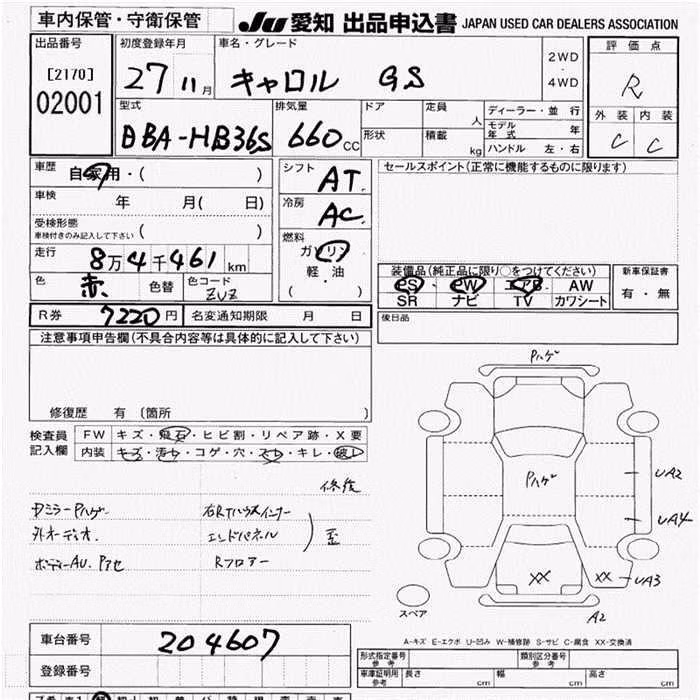 車内保管・守衛保管
JU 愛知 出品申込書 JAPAN USED CAR DEALERS ASSOCIATION
出品番号
[2170]
02001
初度登録年月
27 11月
車名・グレード
キャロル GS
2WD
・
4WD
評価点
R
外装 内装
C C
型式
DBA-HB36S
排気量
660 CC
ドア
形状
定員 人
積載 kg
ディーラー・並行
モデル年式 年
ハンドル 左・右
車歴
自家用・( )
車検
年 月( 日)
受検形態
車検付きのみ記入して下さい ( )
走行
8万4千461 km
色
赤
色替
色コード
ZUZ
シフト
AT
冷房
AC
燃料
ガソリン
軽・油
( ・ )
セールスポイント(正常に機能するものに限ります)
装備品(純正品に限り○をつけてください)
PS PW エアB AW
SR ナビ TV カワシート
新車保証書
有・無
R券 7220円
名変通知期限 月 日
後日品
注意事項申告欄(不具合内容等は具体的に記入して下さい)
修復歴 有 (箇所 )
検査員
記入欄
FW キズ・飛石・ヒビ割・リペア跡・X要
内装 キズ・汚れ・コゲ・穴・スレ・キレ・破れ
修復
ダミラーPハゲ
外オーディオ.
ボディーAU. Pアセ
右RTハウスインナー
エンドパネル
Rフロアー
歪
Pハゲ
Pハゲ
UA2
UA4
UA3
XX
XX
A2
スペア
A-キズ E-エクボ U-凹み W-補修跡 S-サビ C-腐食 XX-交換済
車台番号
204607
登録番号
形式指定番号
参考
類別区分番号
参考
車庫証明用
参考
長さ cm
幅 cm
高さ cm